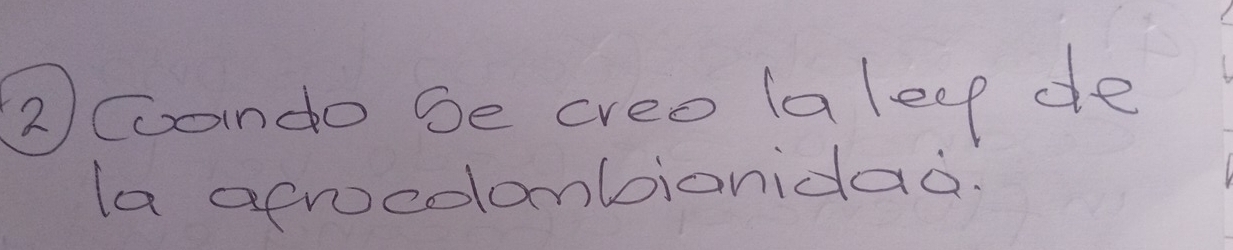 ② Cuando Se creo la ley de
la afrocolombianidad.